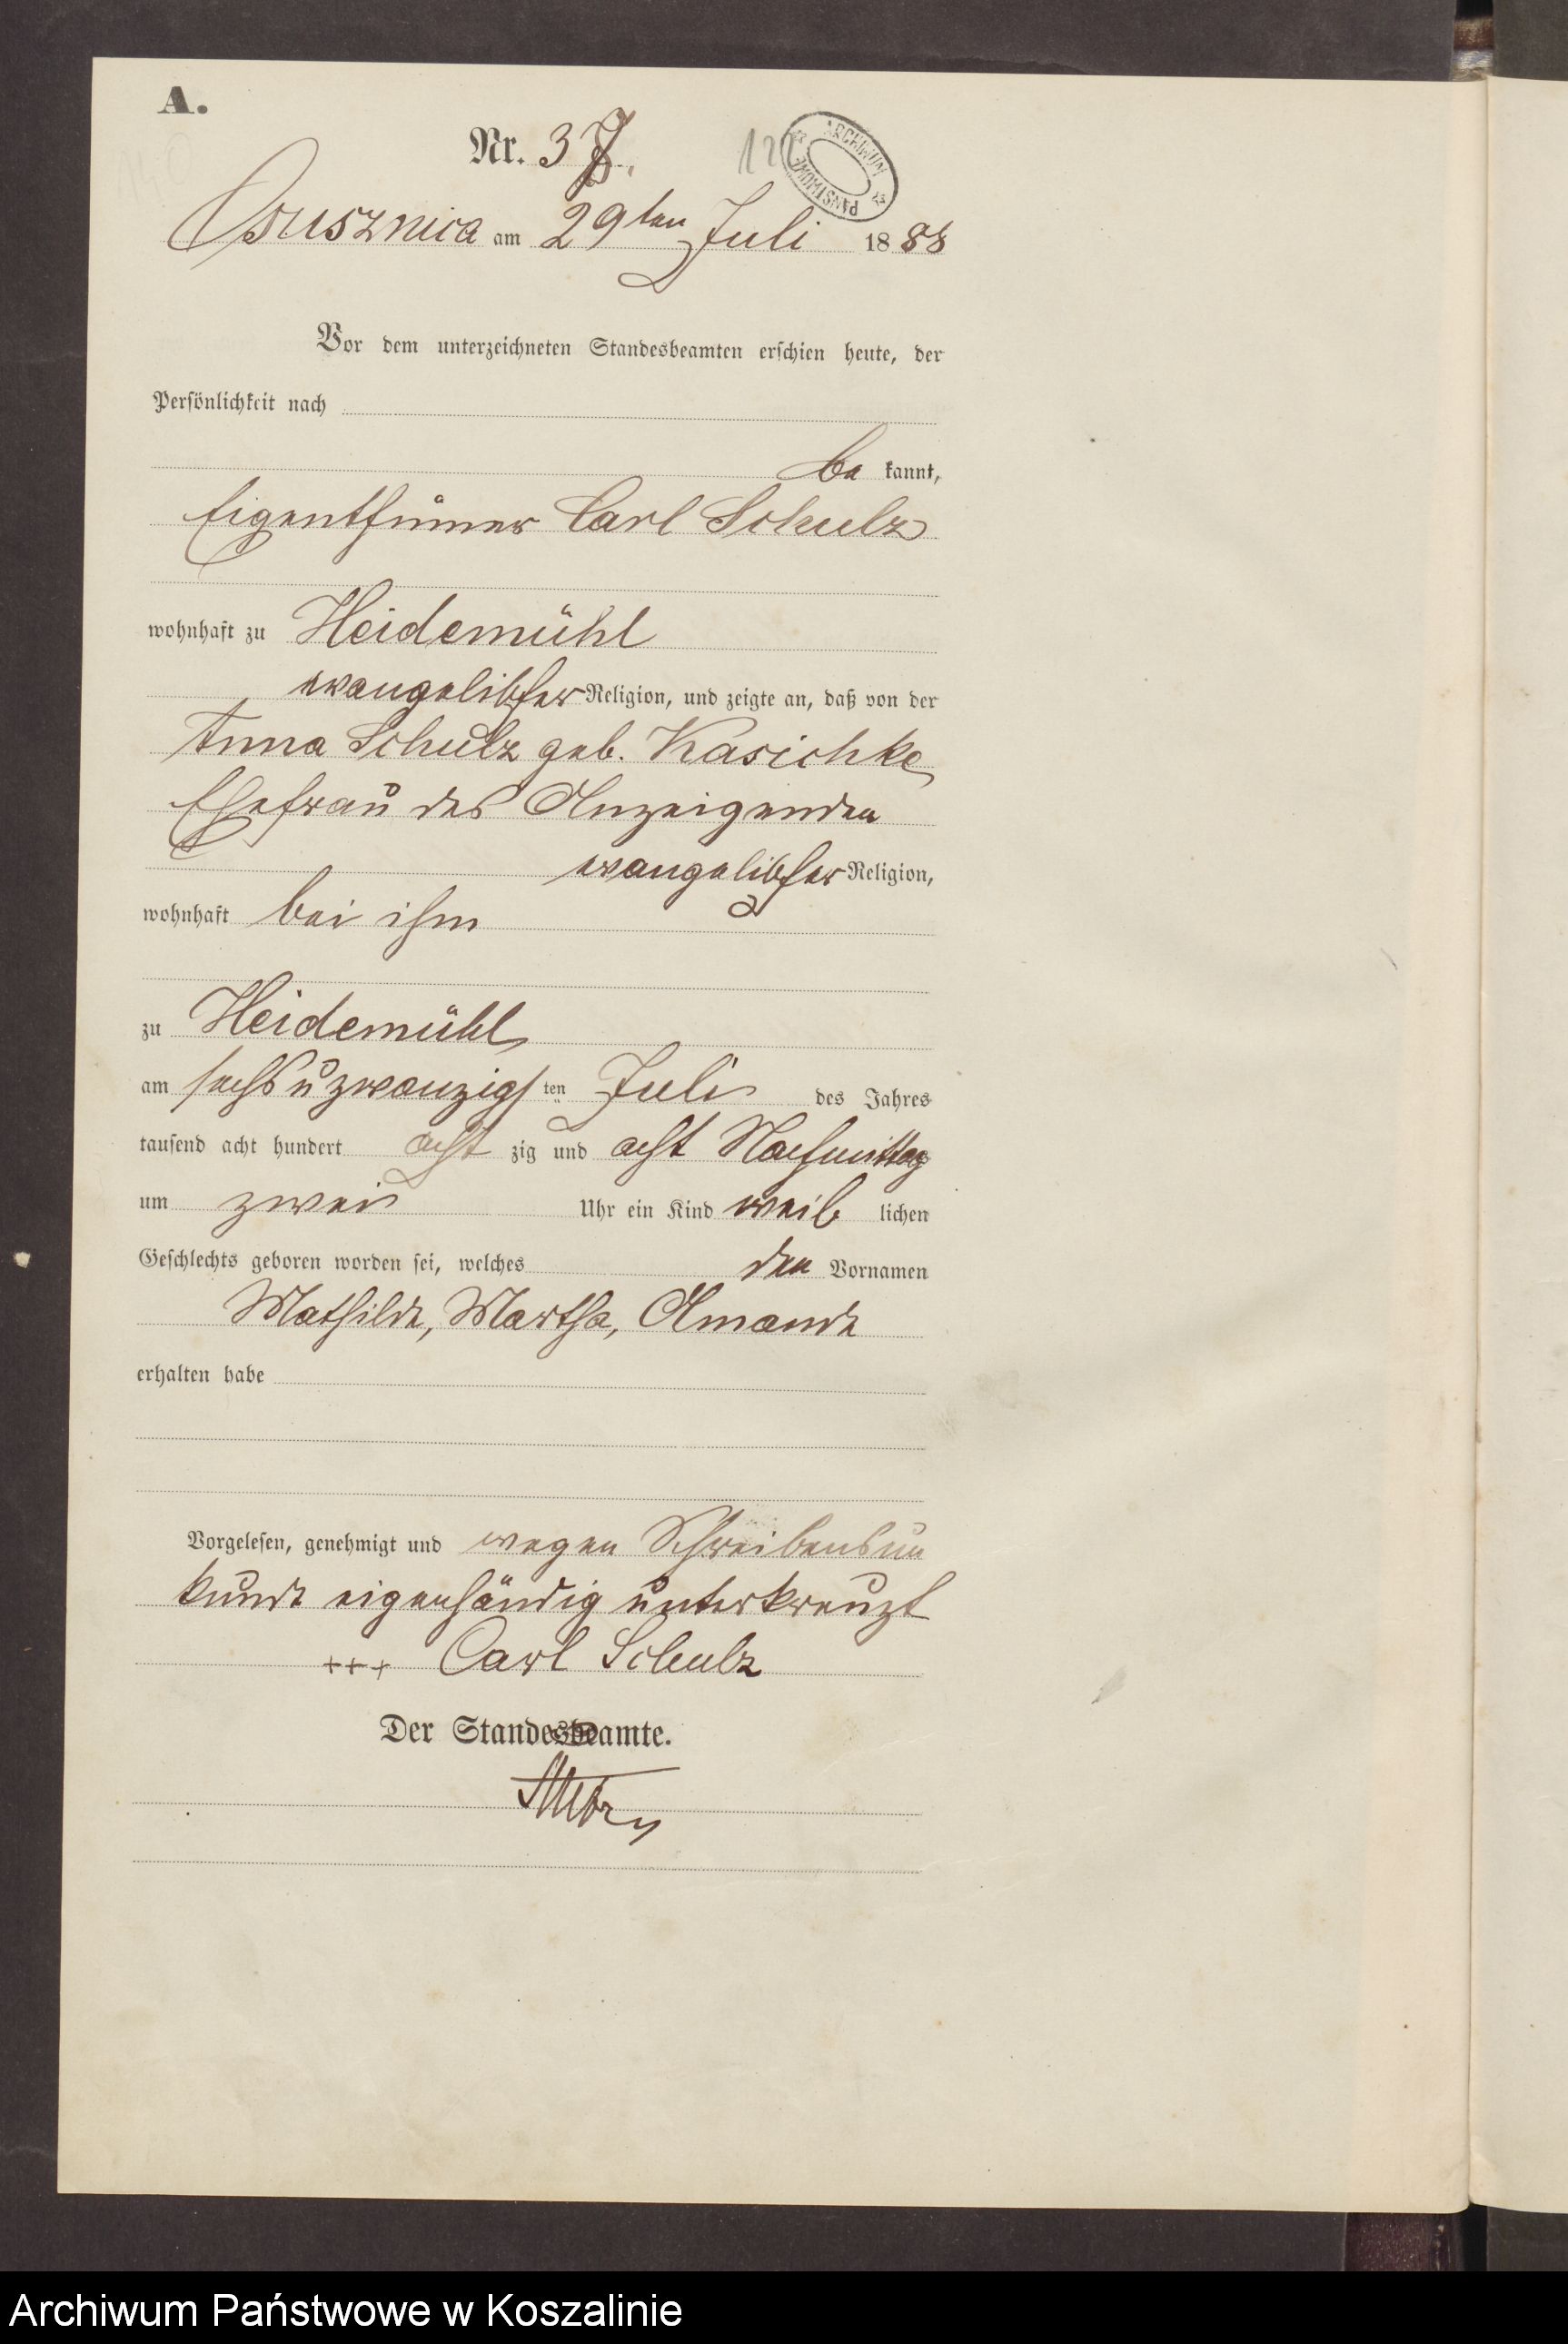 A.
Nr. 37.
122
ARCHIWUM PAŃSTWOWE
Ossusznica am 29ten Juli 1888
Vor dem unterzeichneten Standesbeamten erschien heute, der
Persönlichkeit nach
be kannt,
Eigenthümer Carl Schulz
wohnhaft zu Heidemühl
evangelischer Religion, und zeigte an, daß von der
Anna Schulz geb. Kasischke
Ehefrau des Anzeigenden
evangelischer Religion,
wohnhaft bei ihm
zu Heidemühl
am sechs u zwanzigsten Juli des Jahres
tausend acht hundert acht zig und acht Nachmittag
um zwei Uhr ein Kind weib lichen
Geschlechts geboren worden sei, welches den Vornamen
Mathilde, Martha, Amande
erhalten habe
Vorgelesen, genehmigt und wegen Schreibensun
kunde eigenhändig unterkreuzt
+++ Carl Schulz
Der Standesbeamte.
Archiwum Państwowe w Koszalinie